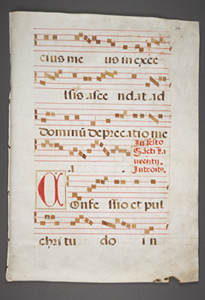 eius me us in exce
lsis asce ndat ad
dominū deprecatio me
In festo
Sācti La
urentij
Introitꝰ.
Confe ssio et pul
chritu do in